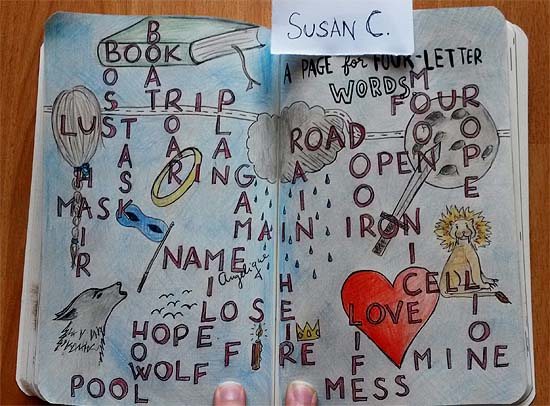 SUSAN C.
A PAGE for FOUR-LETTER
WORDS
BOAT
BOOK
BOSS
TRIP
ROAR
PLAN
LUST
TASK
RING
HAIR
MASK
GAME
MAIN
NAME
Angelique
MILE
LOSE
HOPE
HOWL
WOLF
POOL
FIRE
HEIR
RAIN
ROAD
DOOR
OPEN
MOON
FOUR
ROPE
IRON
NICE
CELL
LION
LOVE
LIFE
MINE
MESS